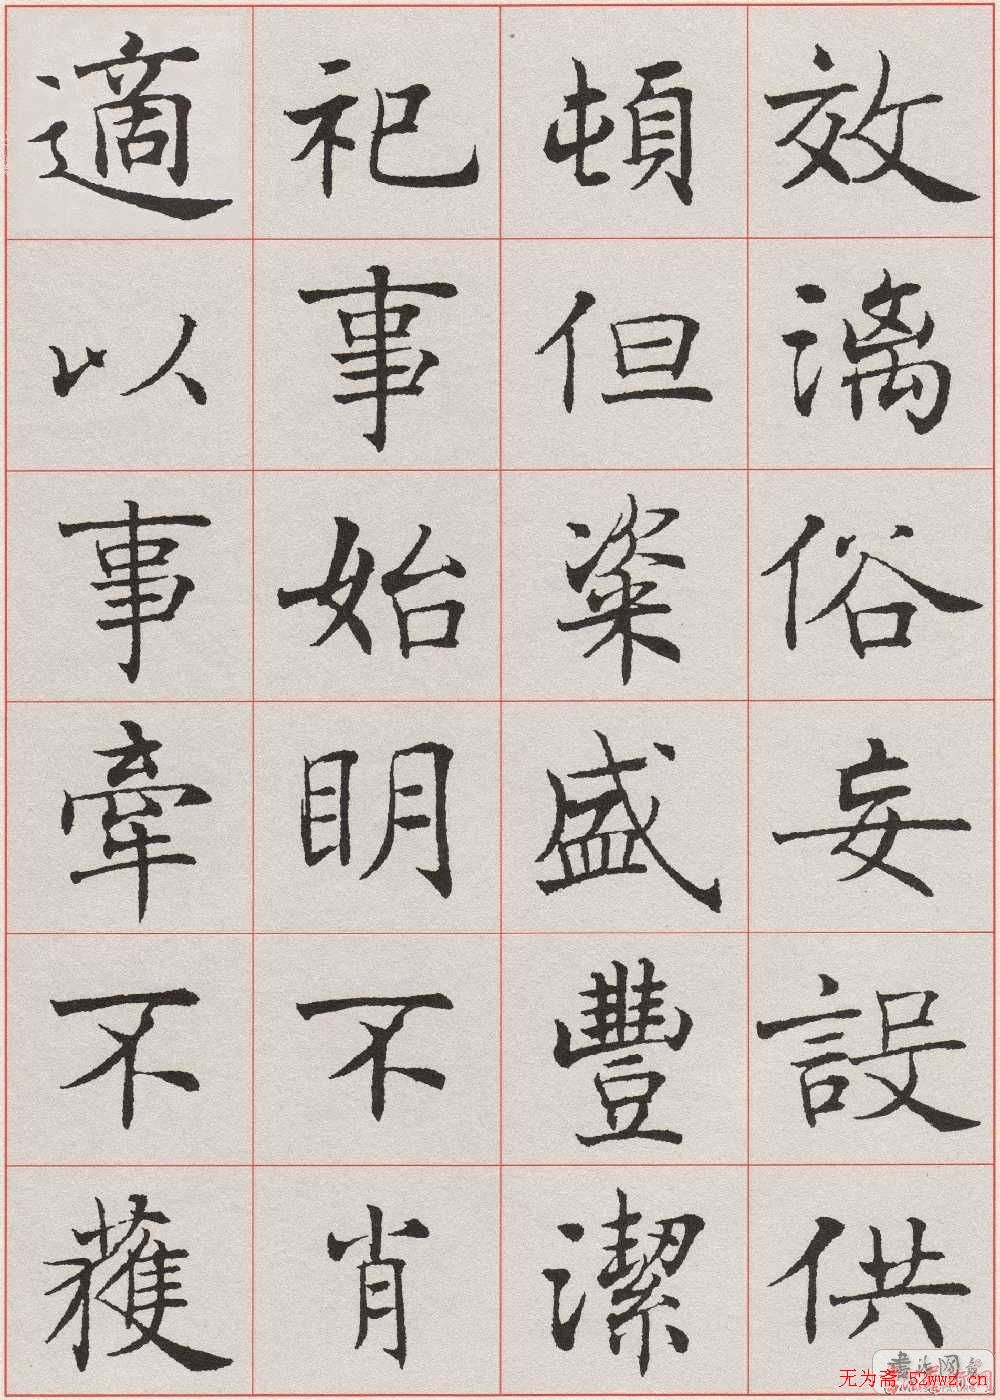 效漓俗妄設供
頓但粢盛豐潔
祀事始眀不肖
適以事牽不獲
无为斋 52wwz.cn